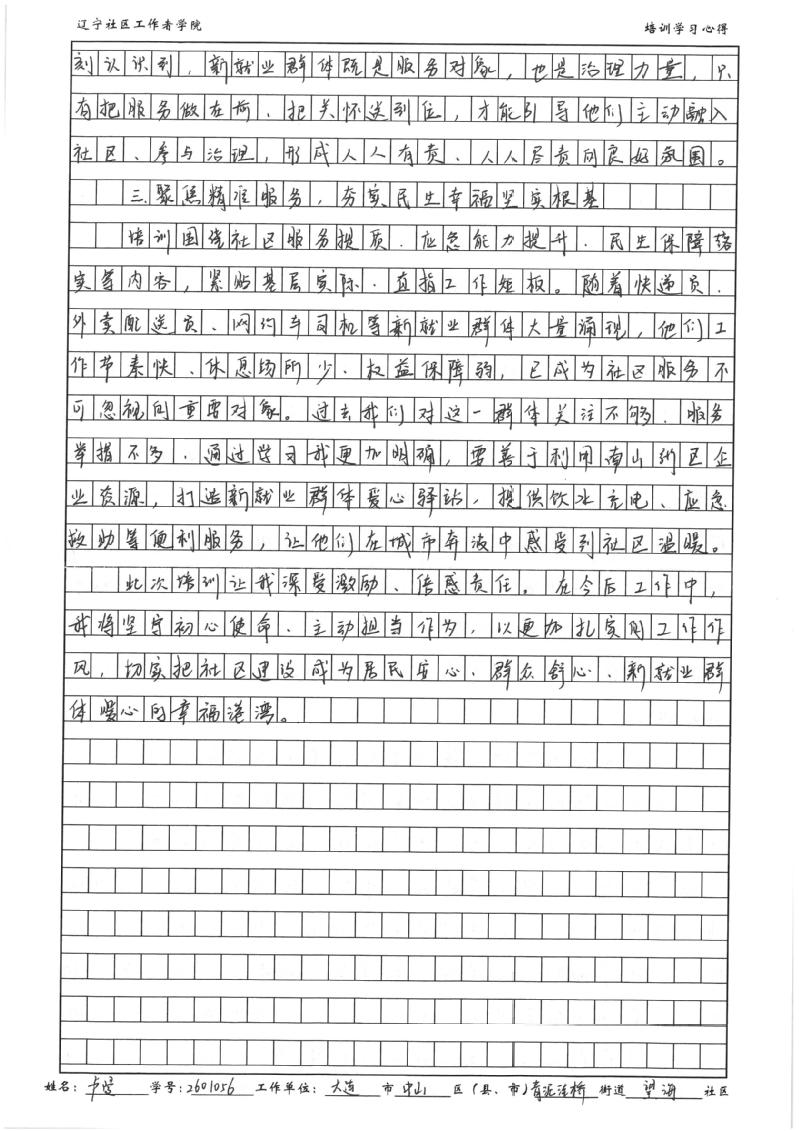 辽宁社区工作者学院 培训学习心得
刻认识到，新就业群体既是服务对象，也是治理力量，只
有把服务做在前、把关怀送到位，才能引导他们主动融入
社区、参与治理，形成人人有责、人人尽责的良好氛围。
三.聚焦精准服务，夯实民生幸福坚实根基
培训围绕社区服务提质、应急能力提升、民生保障落
实等内容，紧贴基层实际、直指工作短板。随着快递员、
外卖配送员、网约车司机等新就业群体大量涌现，他们工
作节奏快、休息场所少、权益保障弱，已成为社区服务不
可忽视的重要对象。过去我们对这一群体关注不够、服务
举措不多，通过学习我更加明确，要善于利用南山街区企
业资源，打造新就业群体爱心驿站，提供饮水充电、应急
救助等便利服务，让他们在城市奔波中感受到社区温暖。
此次培训让我深受激励、倍感责任。在今后工作中，
我将坚守初心使命、主动担当作为，以更加扎实的工作作
风，切实把社区建设成为居民安心、群众舒心、新就业群
体暖心的幸福港湾。
姓名：卢 学号：2601056 工作单位：大连 市 中山 区（县、市）青泥洼桥 街道 望海 社区